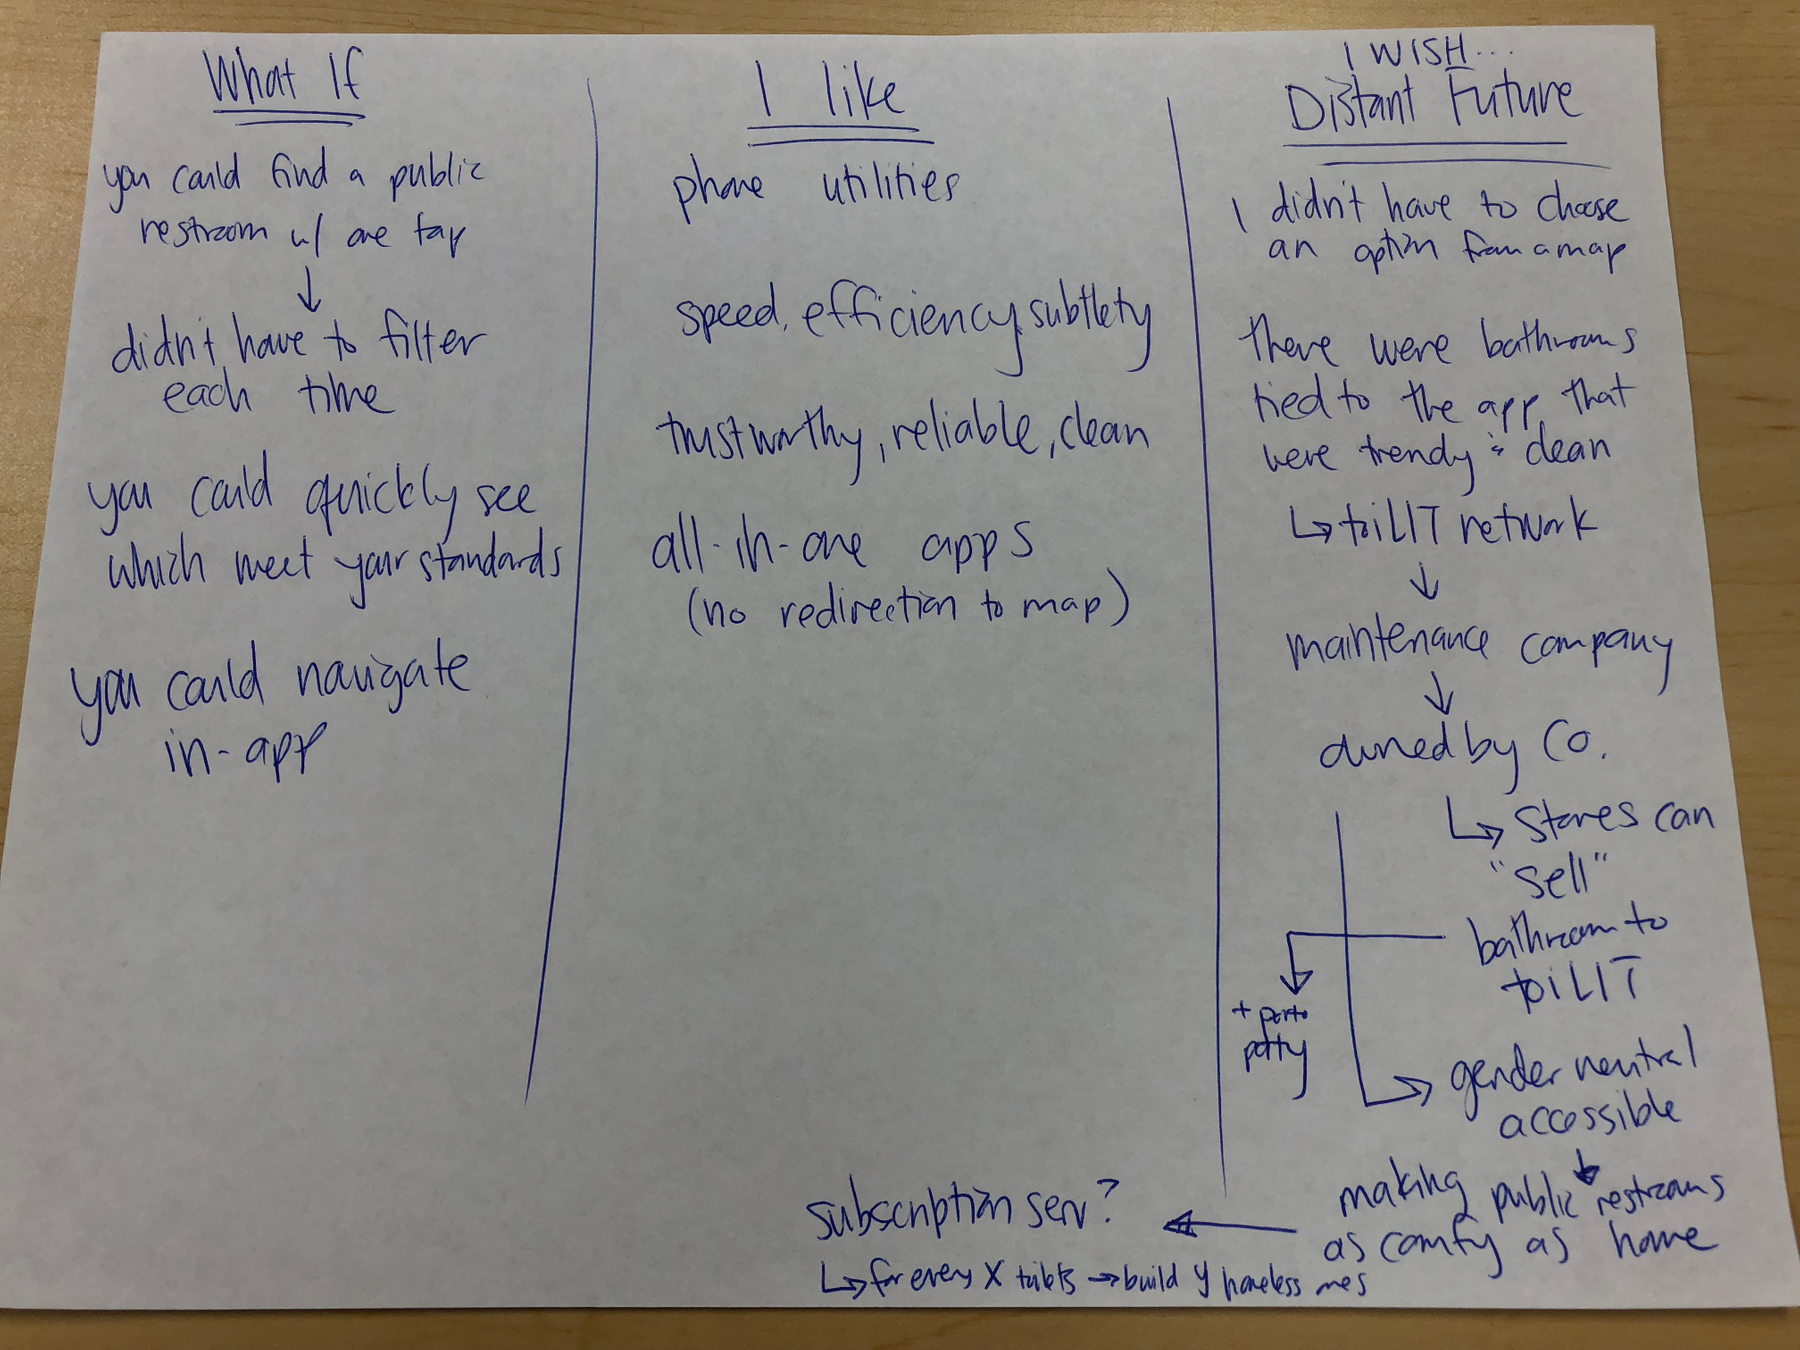 What If
you could find a public
restroom w/ one tap
↓
didn't have to filter
each time
you could quickly see
which meet your standards
you could navigate
in-app
I like
phone utilities
speed, efficiency, subtlety
trustworthy, reliable, clean
all-in-one apps
(no redirection to map)
I WISH...
Distant Future
I didn't have to choose
an option from a map
there were bathrooms
tied to the app that
were trendy & clean
↳ toiLIT network
↓
maintenance company
↓
owned by Co.
↳ stores can
"sell"
bathroom to
toiLIT
+ porto
potty
gender neutral
accessible
↓
making public restrooms
as comfy as home
subscription serv?
↳ for every X toilets → build y homeless ones